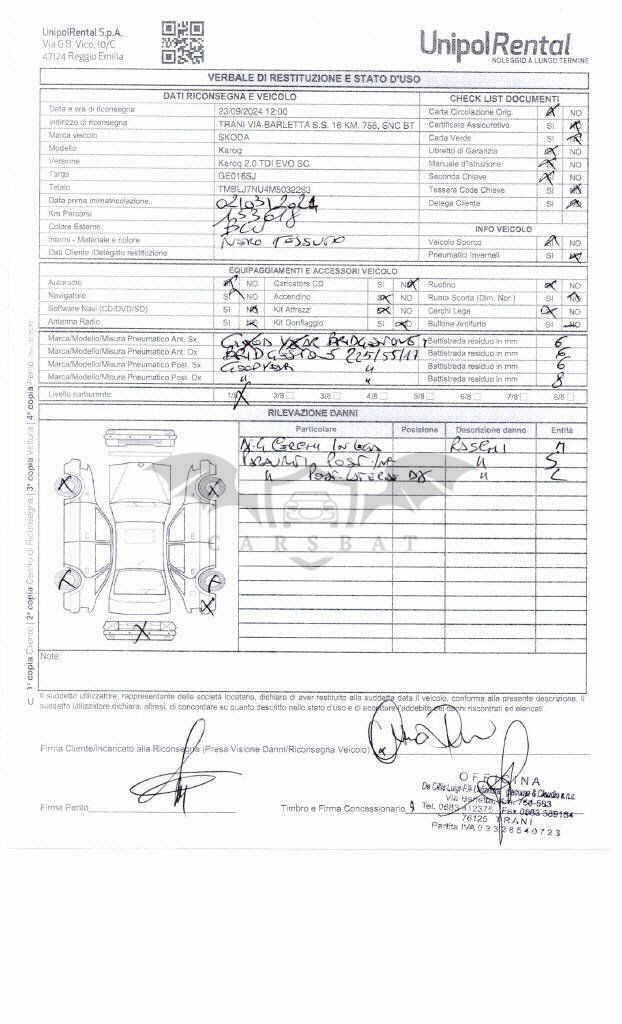 UnipolRental S.p.A.
Via G.B. Vico, 10/C
42124 Reggio Emilia
UnipolRental
NOLEGGIO A LUNGO TERMINE
VERBALE DI RESTITUZIONE E STATO D'USO
DATI RICONSEGNA E VEICOLO
CHECK LIST DOCUMENTI
Data e ora di riconsegna 23/09/2024 12:00 Carta Circolazione Orig. NO
Indirizzo di riconsegna TRANI VIA BARLETTA S.S. 16 KM. 756, SNC BT Certificato Assicurativo SI
Marca veicolo SKODA Carta Verde SI
Modello Karoq Libretto di Garanzia NO
Versione Karoq 2.0 TDI EVO SC Manuale d'Istruzione NO
Targa GE016SJ Seconda Chiave NO
Telaio TMBLJ7NU4M5032263 Tessera Code Chiave SI
Data prima immatricolazione 02/03/2021 Delega Cliente SI
Km Percorsi 153018
Colore Esterno BLU INFO VEICOLO
Interni - Materiale e colore NERO TESSUTO Veicolo Sporco NO
Dati Cliente /Delegato restituzione Pneumatici Invernali SI
EQUIPAGGIAMENTI E ACCESSORI VEICOLO
Autoradio NO Caricatore CD SI NO Ruotino NO
Navigatore SI NO Accendino NO Ruota Scorta (Dim. Nor.) SI
Software Navi (CD/DVD/SD) SI Kit Attrezzi NO Cerchi Lega NO
Antenna Radio SI Kit Gonfiaggio NO Bullone Antifurto SI NO
Marca/Modello/Misura Pneumatico Ant. Sx BRIDGESTONE Battistrada residuo in mm 6
Marca/Modello/Misura Pneumatico Ant. Dx BRIDGESTONE 225/55/17 Battistrada residuo in mm 6
Marca/Modello/Misura Pneumatico Post. Sx GOODYEAR " Battistrada residuo in mm 6
Marca/Modello/Misura Pneumatico Post. Dx " " Battistrada residuo in mm 8
Livello carburante 1/8 2/8 3/8 4/8 5/8 6/8 7/8 8/8
RILEVAZIONE DANNI
Particolare Posizione Descrizione danno Entità
N.4 CERCHI IN LEGA RASCHI M
PARAURTI POST " S
" POST DX " L
CARSBAT
1ª copia Cliente | 2ª copia Centro di Riconsegna | 3ª copia Vettura | 4ª copia Perito
Note:
Il suddetto utilizzatore, rappresentante delle società locataria, dichiara di aver restituito alla suddetta data il veicolo, conforme alla presente descrizione. Il
suddetto utilizzatore dichiara, altresì, di concordare su quanto descritto nello stato d'uso e di accettare l'addebito dei danni riscontrati ed elencati.
Firma Cliente/Incaricato alla Riconsegna (Presa Visione Danni/Riconsegna Veicolo)
Firma Perito
Timbro e Firma Concessionario
OFFICINA
Via Barletta, Km. 756-593
Tel. 0883 412375 Fax 0883 589184
76125 TRANI
Partita IVA 03328540723